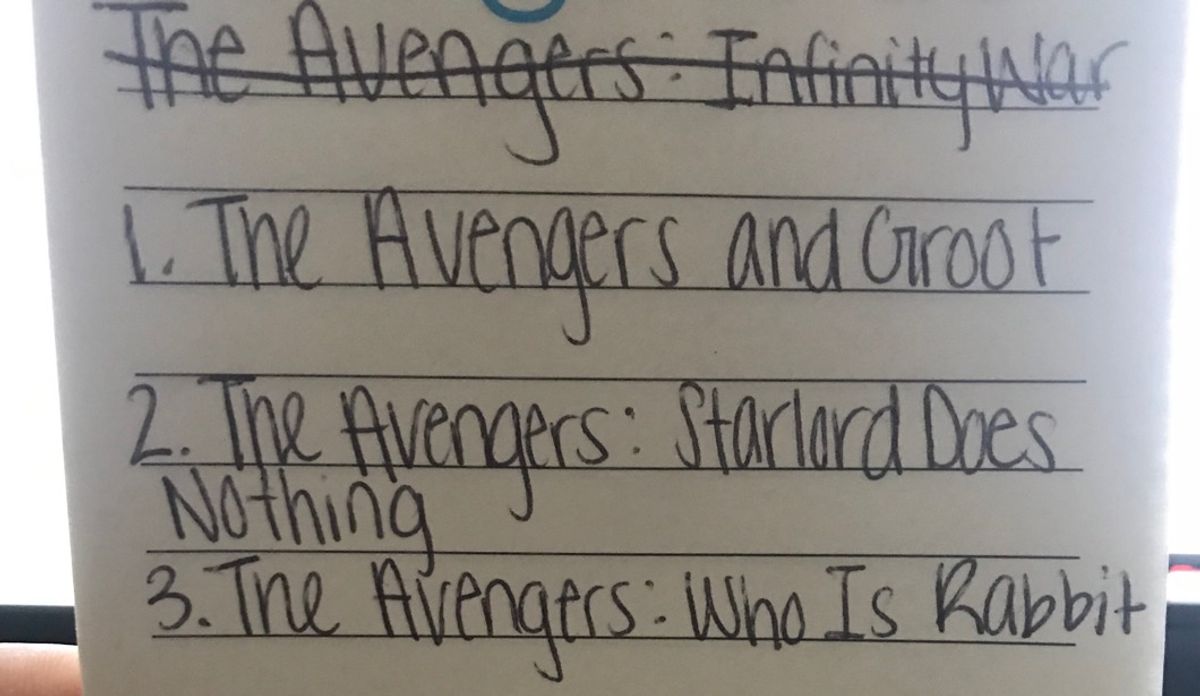 The Avengers: Infinity War
1. The Avengers and Groot
2. The Avengers: Starlord Does
Nothing
3. The Avengers: Who Is Rabbit